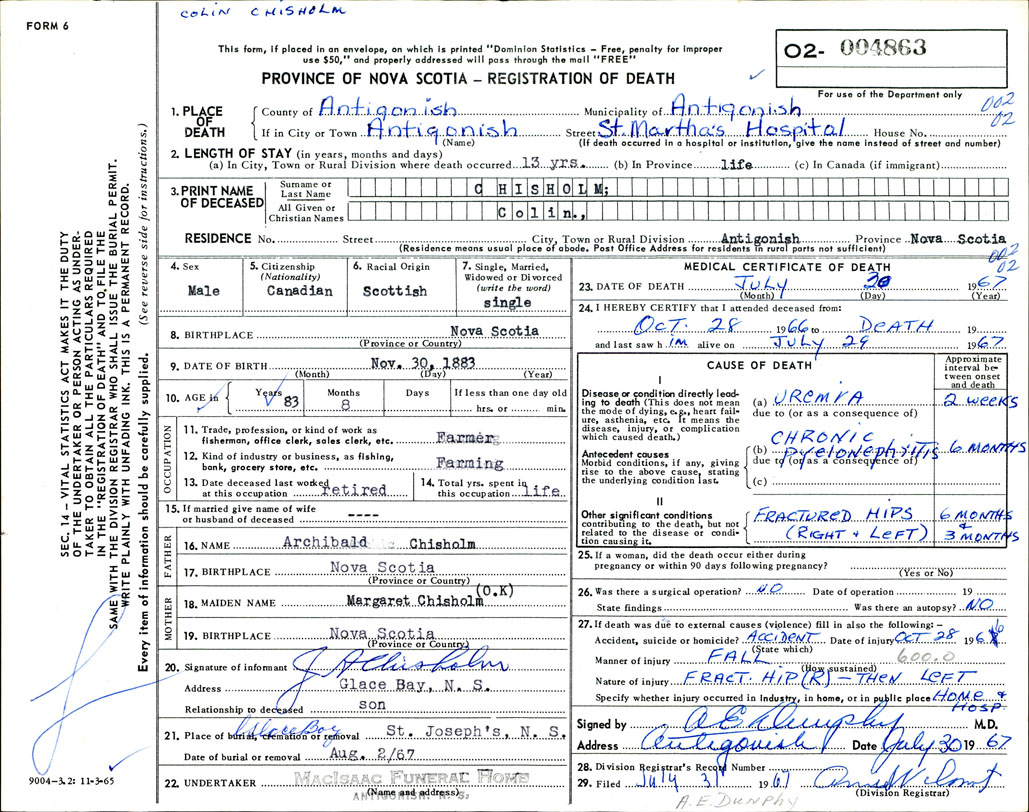 COLIN CHISHOLM
FORM 6
This form, if placed in an envelope, on which is printed "Dominion Statistics – Free, penalty for improper
use $50," and properly addressed will pass through the mail "FREE"
PROVINCE OF NOVA SCOTIA – REGISTRATION OF DEATH
O2- 004863
For use of the Department only
002
02
1. PLACE OF DEATH
County of Antigonish Municipality of Antigonish
If in City or Town Antigonish Street St. Martha's Hospital House No.
(Name) (If death occurred in a hospital or institution, give the name instead of street and number)
2. LENGTH OF STAY (in years, months and days)
(a) In City, Town or Rural Division where death occurred 13 yrs. (b) In Province life (c) In Canada (if immigrant)
3. PRINT NAME OF DECEASED
Surname or Last Name CHISHOLM;
All Given or Christian Names Colin.,
RESIDENCE No. Street City, Town or Rural Division Antigonish Province Nova Scotia
(Residence means usual place of abode. Post Office Address for residents in rural parts not sufficient)
002
02
4. Sex
Male
5. Citizenship
(Nationality)
Canadian
6. Racial Origin
Scottish
7. Single, Married,
Widowed or Divorced
(write the word)
single
8. BIRTHPLACE Nova Scotia
(Province or Country)
9. DATE OF BIRTH Nov. 30, 1883
(Month) (Day) (Year)
10. AGE in Years 83 Months 8 Days If less than one day old
hrs. or min.
OCCUPATION
11. Trade, profession, or kind of work as
fisherman, office clerk, sales clerk, etc. Farmer
12. Kind of industry or business, as fishing,
bank, grocery store, etc. Farming
13. Date deceased last worked
at this occupation retired
14. Total yrs. spent in
this occupation life
15. If married give name of wife
or husband of deceased ----
FATHER
16. NAME Archibald Chisholm
17. BIRTHPLACE Nova Scotia
(Province or Country)
MOTHER
18. MAIDEN NAME Margaret Chisholm (O.K)
19. BIRTHPLACE Nova Scotia
(Province or Country)
20. Signature of informant J A Chisholm
Address Glace Bay, N. S.
Relationship to deceased son
21. Place of burial, cremation or removal Glace Bay St. Joseph's, N. S.
Date of burial or removal Aug. 2/67
22. UNDERTAKER MacIsaac Funeral Home
(Name and address)
ANTIGONISH, N. S.
MEDICAL CERTIFICATE OF DEATH
23. DATE OF DEATH July 30 1967
(Month) (Day) (Year)
24. I HEREBY CERTIFY that I attended deceased from:
Oct. 28 1966 to DEATH 19
and last saw him alive on July 29 1967
CAUSE OF DEATH
Approximate
interval be-
tween onset
and death
I
Disease or condition directly lead-
ing to death (This does not mean
the mode of dying, e.g., heart fail-
ure, asthenia, etc. It means the
disease, injury, or complication
which caused death.)
(a) UREMIA 2 WEEKS
due to (or as a consequence of)
Antecedent causes
Morbid conditions, if any, giving
rise to the above cause, stating
the underlying condition last.
CHRONIC
(b) Pyelonephritis 6 MONTHS
due to (or as a consequence of)
(c)
II
Other significant conditions
contributing to the death, but not
related to the disease or condi-
tion causing it.
FRACTURED HIPS
(RIGHT + LEFT)
6 MONTHS
&
3 MONTHS
25. If a woman, did the death occur either during
pregnancy or within 90 days following pregnancy?
(Yes or No)
26. Was there a surgical operation? NO Date of operation 19
State findings Was there an autopsy? NO
27. If death was due to external causes (violence) fill in also the following: –
Accident, suicide or homicide? ACCIDENT Date of injury OCT 28 196
(State which)
Manner of injury FALL 600.0
(How sustained)
Nature of injury FRACT. HIP (R) – THEN LEFT
Specify whether injury occurred in industry, in home, or in public place HOME &
HOSP.
Signed by A E Dunphy M.D.
Address Antigonish Date July 30 1967
28. Division Registrar's Record Number
29. Filed July 31 1967
(Division Registrar)
A. E. DUNPHY
SEC. 14 – VITAL STATISTICS ACT MAKES IT THE DUTY
OF THE UNDERTAKER OR PERSON ACTING AS UNDER-
TAKER TO OBTAIN ALL THE PARTICULARS REQUIRED
IN THE "REGISTRATION OF DEATH" AND TO FILE THE
SAME WITH THE DIVISION REGISTRAR WHO SHALL ISSUE THE BURIAL PERMIT.
WRITE PLAINLY WITH UNFADING INK. THIS IS A PERMANENT RECORD.
Every item of information should be carefully supplied. (See reverse side for instructions.)
9004-3.2: 11-3-65